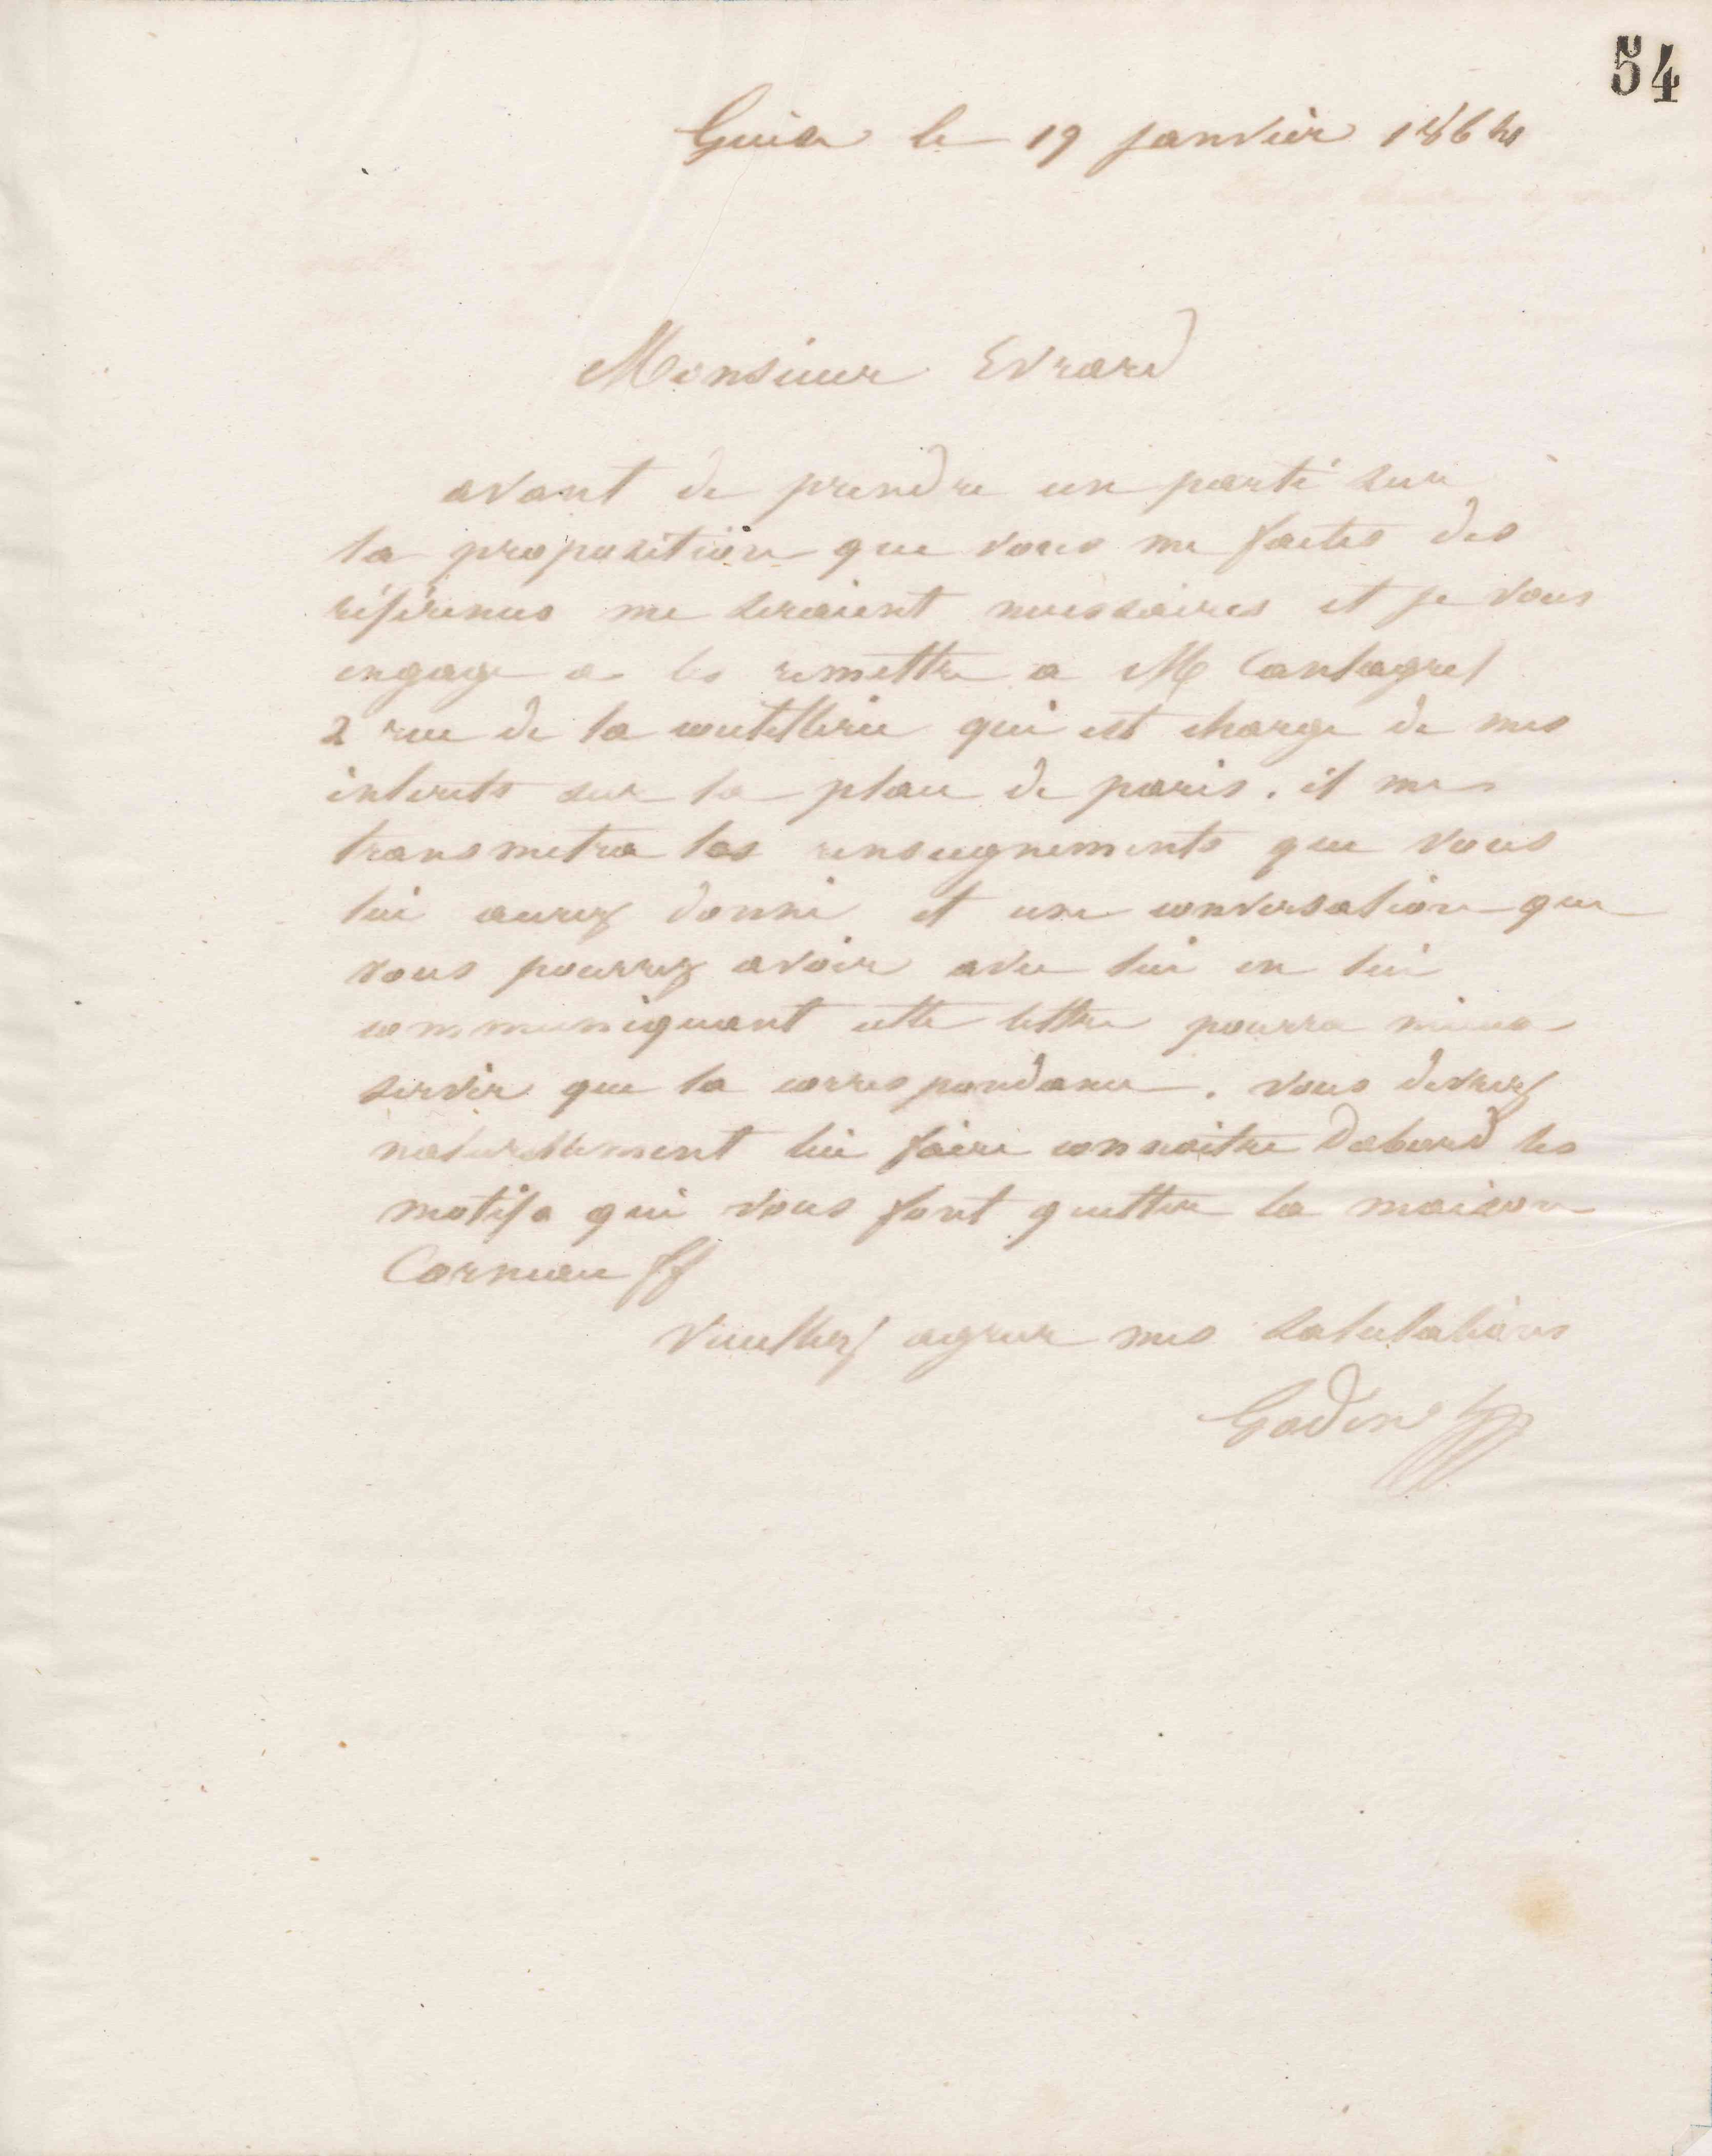 54
Guise le 19 janvier 1864
Monsieur Evrard
avant de prendre un parti sur
la proposition que vous me faites des
références me seraient necessaires et je vous
engage a les remettre a M Cantagrel
2 rue de la coutellerie qui est charge de mes
interets sur la place de paris. il me
transmetra les renseignements que vous
lui aurez donné et une conversation que
vous pourrez avoir avec lui en lui
communiquant cette lettre pourra mieux
servir que la correspondance. vous devrez
naturellement lui faire connaitre dabord les
motifs qui vous font quitter la maison
Corneau
Veuillez agreer mes salutations
Godin